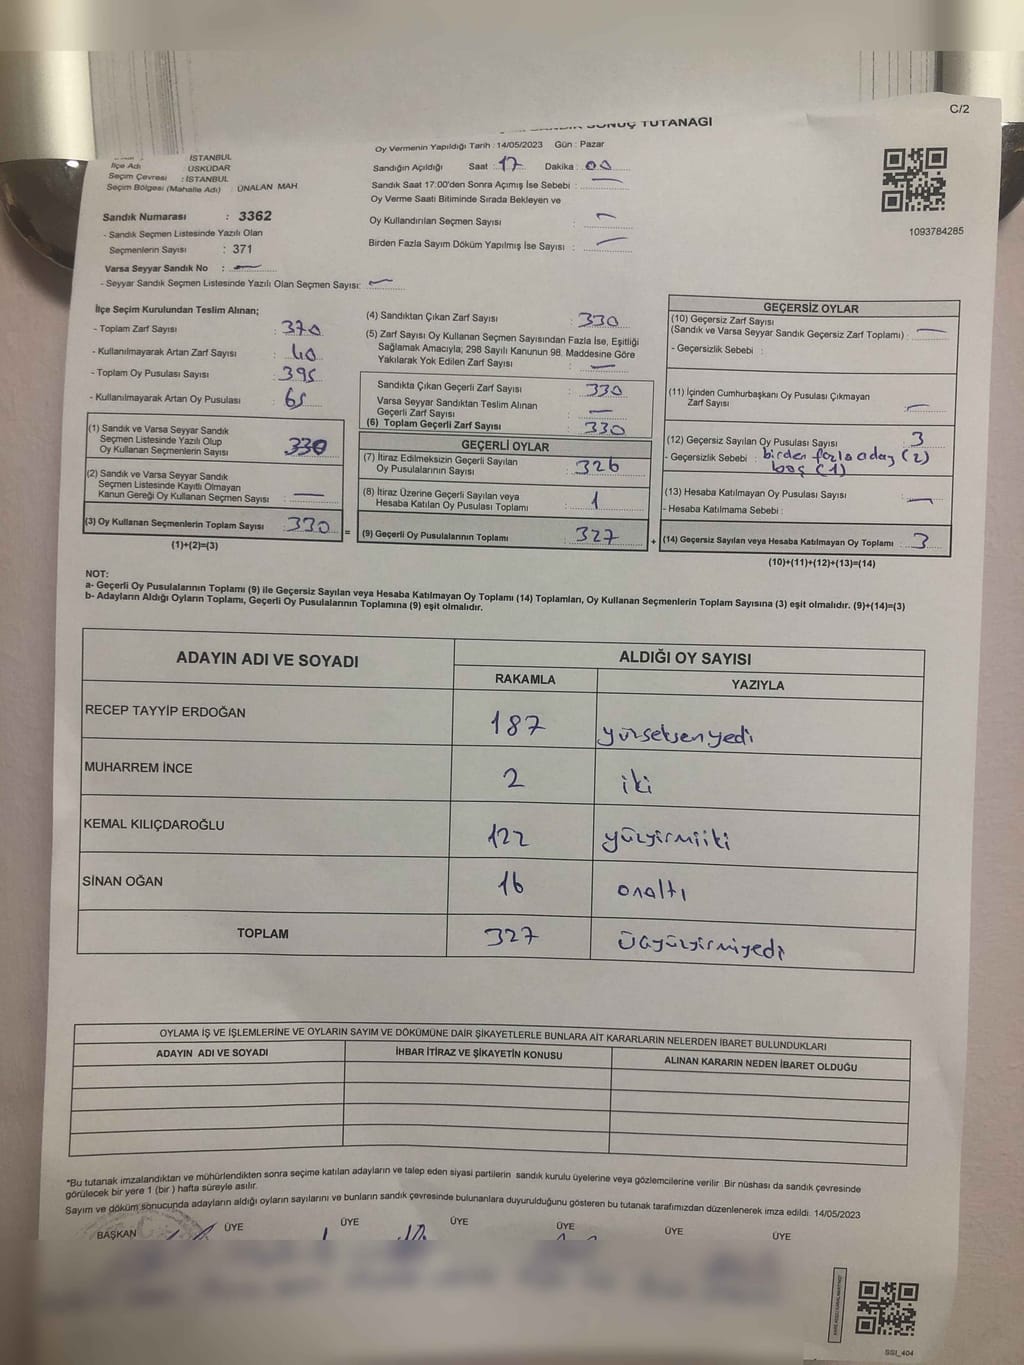 C/2
SONUÇ TUTANAĞI
İSTANBUL
İlçe Adı ÜSKÜDAR
Seçim Çevresi : İSTANBUL
Seçim Bölgesi (Mahalle Adı) : ÜNALAN MAH.
Oy Vermenin Yapıldığı Tarih : 14/05/2023 Gün : Pazar
Sandığın Açıldığı Saat : 17 Dakika : 00
Sandık Saat 17:00'den Sonra Açımış İse Sebebi : —
Oy Verme Saati Bitiminde Sırada Bekleyen ve
Oy Kullandırılan Seçmen Sayısı : —
Birden Fazla Sayım Döküm Yapılmış İse Sayısı : —
1093784285
Sandık Numarası : 3362
- Sandık Seçmen Listesinde Yazılı Olan
Seçmenlerin Sayısı : 371
Varsa Seyyar Sandık No : —
- Seyyar Sandık Seçmen Listesinde Yazılı Olan Seçmen Sayısı: —
İlçe Seçim Kurulundan Teslim Alınan;
- Toplam Zarf Sayısı : 370
- Kullanılmayarak Artan Zarf Sayısı : 40
- Toplam Oy Pusulası Sayısı : 395
- Kullanılmayarak Artan Oy Pusulası : 65
(1) Sandık ve Varsa Seyyar Sandık
Seçmen Listesinde Yazılı Olup
Oy Kullanan Seçmenlerin Sayısı 330
(2) Sandık ve Varsa Seyyar Sandık
Seçmen Listesinde Kayıtlı Olmayan
Kanun Gereği Oy Kullanan Seçmen Sayısı : —
(3) Oy Kullanan Seçmenlerin Toplam Sayısı : 330 =
(1)+(2)=(3)
(4) Sandıktan Çıkan Zarf Sayısı : 330
(5) Zarf Sayısı Oy Kullanan Seçmen Sayısından Fazla İse, Eşitliği
Sağlamak Amacıyla; 298 Sayılı Kanunun 98. Maddesine Göre
Yakılarak Yok Edilen Zarf Sayısı : —
Sandıkta Çıkan Geçerli Zarf Sayısı : 330
Varsa Seyyar Sandıktan Teslim Alınan
Geçerli Zarf Sayısı : —
(6) Toplam Geçerli Zarf Sayısı : 330
GEÇERLİ OYLAR
(7) İtiraz Edilmeksizin Geçerli Sayılan
Oy Pusulalarının Sayısı : 326
(8) İtiraz Üzerine Geçerli Sayılan veya
Hesaba Katılan Oy Pusulası Toplamı : 1
(9) Geçerli Oy Pusulalarının Toplamı : 327 +
GEÇERSİZ OYLAR
(10) Geçersiz Zarf Sayısı
(Sandık ve Varsa Seyyar Sandık Geçersiz Zarf Toplamı) : —
- Geçersizlik Sebebi :
(11) İçinden Cumhurbaşkanı Oy Pusulası Çıkmayan
Zarf Sayısı : —
(12) Geçersiz Sayılan Oy Pusulası Sayısı : 3
- Geçersizlik Sebebi : birden fazla aday (2)
boş (1)
(13) Hesaba Katılmayan Oy Pusulası Sayısı : —
- Hesaba Katılmama Sebebi :
(14) Geçersiz Sayılan veya Hesaba Katılmayan Oy Toplamı : 3
(10)+(11)+(12)+(13)=(14)
NOT:
a- Geçerli Oy Pusulalarının Toplamı (9) ile Geçersiz Sayılan veya Hesaba Katılmayan Oy Toplamı (14) Toplamları, Oy Kullanan Seçmenlerin Toplam Sayısına (3) eşit olmalıdır. (9)+(14)=(3)
b- Adayların Aldığı Oyların Toplamı, Geçerli Oy Pusulalarının Toplamına (9) eşit olmalıdır.
ADAYIN ADI VE SOYADI ALDIĞI OY SAYISI
RAKAMLA YAZIYLA
RECEP TAYYİP ERDOĞAN 187 yüzseksenyedi
MUHARREM İNCE 2 iki
KEMAL KILIÇDAROĞLU 122 yüzyirmiiki
SİNAN OĞAN 16 onaltı
TOPLAM 327 üçyüzyirmiyedi
OYLAMA İŞ VE İŞLEMLERİNE VE OYLARIN SAYIM VE DÖKÜMÜNE DAİR ŞİKAYETLERLE BUNLARA AİT KARARLARIN NELERDEN İBARET BULUNDUKLARI
ADAYIN ADI VE SOYADI İHBAR İTİRAZ VE ŞİKAYETİN KONUSU ALINAN KARARIN NEDEN İBARET OLDUĞU
*Bu tutanak imzalandıktan ve mühürlendikten sonra seçime katılan adayların ve talep eden siyasi partilerin sandık kurulu üyelerine veya gözlemcilerine verilir. Bir nüshası da sandık çevresinde
görülecek bir yere 1 (bir ) hafta süreyle asılır.
Sayım ve döküm sonucunda adayların aldığı oyların sayılarını ve bunların sandık çevresinde bulunanlara duyurulduğunu gösteren bu tutanak tarafımızdan düzenlenerek imza edildi. 14/05/2023
BAŞKAN ÜYE ÜYE ÜYE ÜYE ÜYE ÜYE
SSI_404